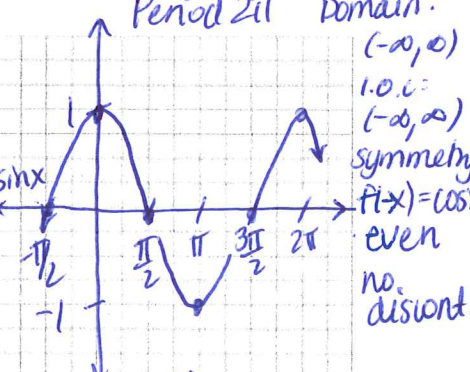 Period 2π Domain:
(-∞,∞)
I.O.C:
(-∞,∞)
symmetry
f(-x)=cos
even
no
discont
1
sinx
-π/2
π/2
π
3π/2
2π
-1